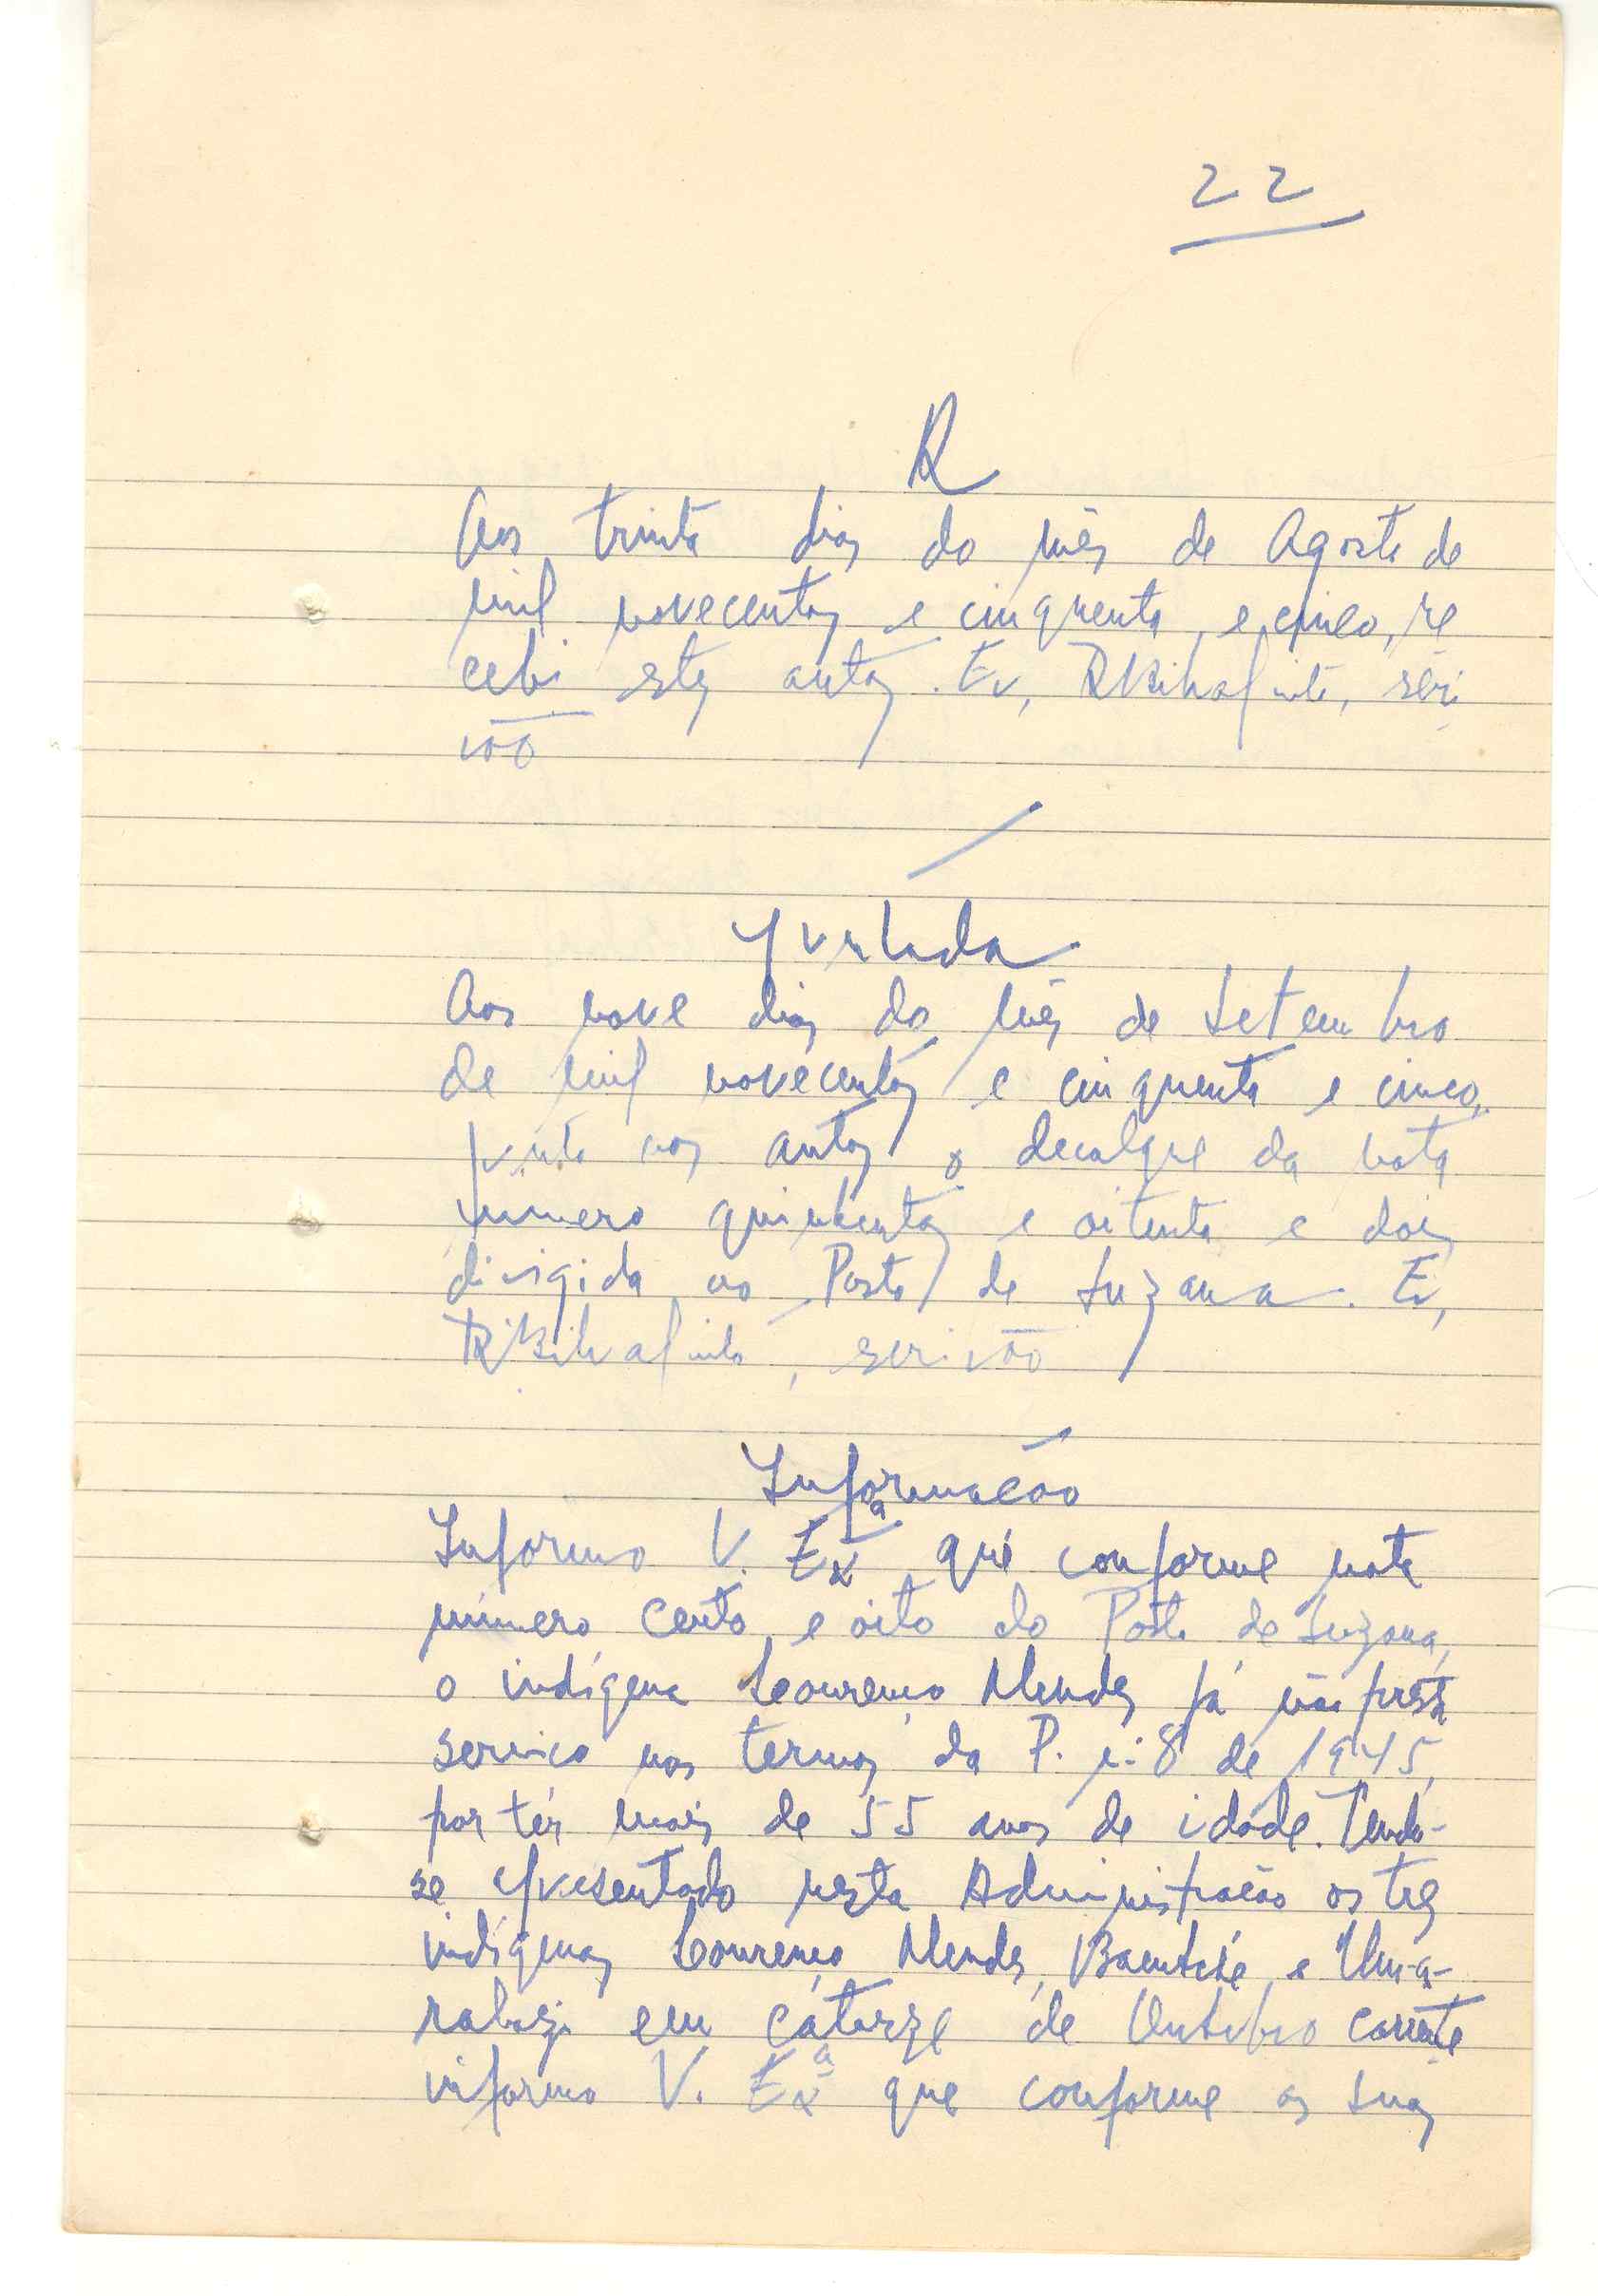 22
R
Aos trinta dias do mês de Agosto de
mil novecentos e cinquenta e cinco, re
cebi estes autos. Eu,
vão
Juntada
Aos nove dias do mês de Setembro
de mil novecentos e cinquenta e cinco,
junto aos autos o decalque da nota
número quinhentos e oitenta e dois
dirigida ao Posto de Suzana. Eu,
escrivão
Informação
Informo V. Exª que conforme nota
número cento e oito do Posto de Suzana,
o indígena Lourenço Mendes já não presta
serviço nos termos da P. nº 8 de 1945,
por ter mais de 55 anos de idade. Tendo-
se apresentado nesta Administração os três
indígenas Lourenço Mendes, e
em catorze de Outubro corrente
informo V. Exª que conforme as suas